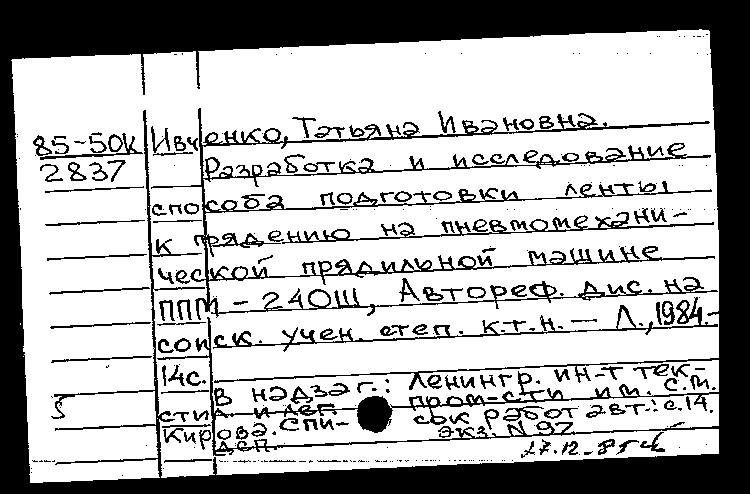 85-50К Ивченко, Татьяна Ивановна.
2837 Разработка и исследование
способа подготовки ленты
к прядению на пневмомехани-
ческой прядильной машине
ППМ-240Ш, Автореф. дис. на
соиск. учен. степ. к.т.н. — Л., 1984.-
14с.
В надзаг.: Ленингр. ин-т тек-
стил. и лег. пром-сти им. С.М.
Кирова. Спи- сок работ авт.: с.14.
ДСП. экз. N 92
27.12-85